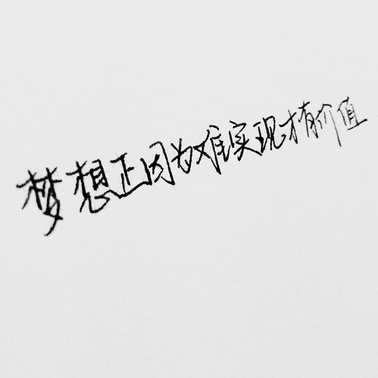 梦想正因为难实现才有价值